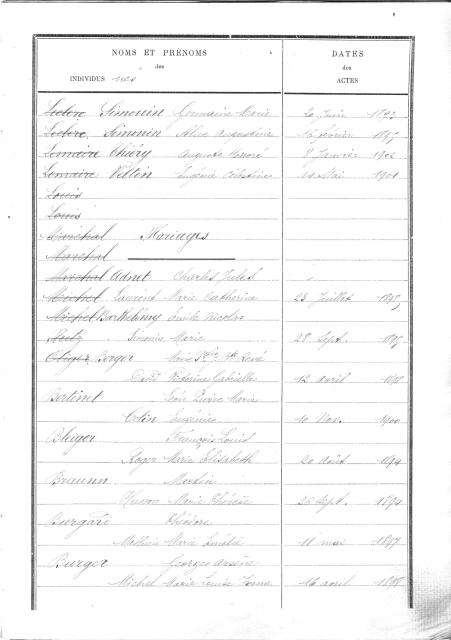 NOMS ET PRÉNOMS
des
INDIVIDUS nés
DATES
des
ACTES
Leclerc Simonin Germaine Marie 20 Juin
Leclerc Simonin Alice Augustine 16 février
Lemaire Thiéry Auguste Honoré 8 Janvier 1902
Lemaire Veltin Eugénie Célestine 14 Mai 1901
Louis
Louis
Maréchal Mariages
Marchal
Marchal Adnet Charles Jules
Michel Laurent Marie Catherine 23 Juillet
Michel Barthélémy Emile Nicolas
Simonin Marie 28 Sept.
Otiger Berger René
David Victorine Gabrielle 12 avril
Bertinet Léon Pierre Marie
Colin Eugénie 10 Nov. 1900
Bleiger François Louis
Roger Marie Elisabeth 20 Août 1894
Braunn Martin
Husson Marie Thérèse 26 Sept. 1894
Burgard Théodore
Mathieu Marie Amélie 11 mai 1897
Burger Georges Arsène
Michel Marie Louise 16 avril